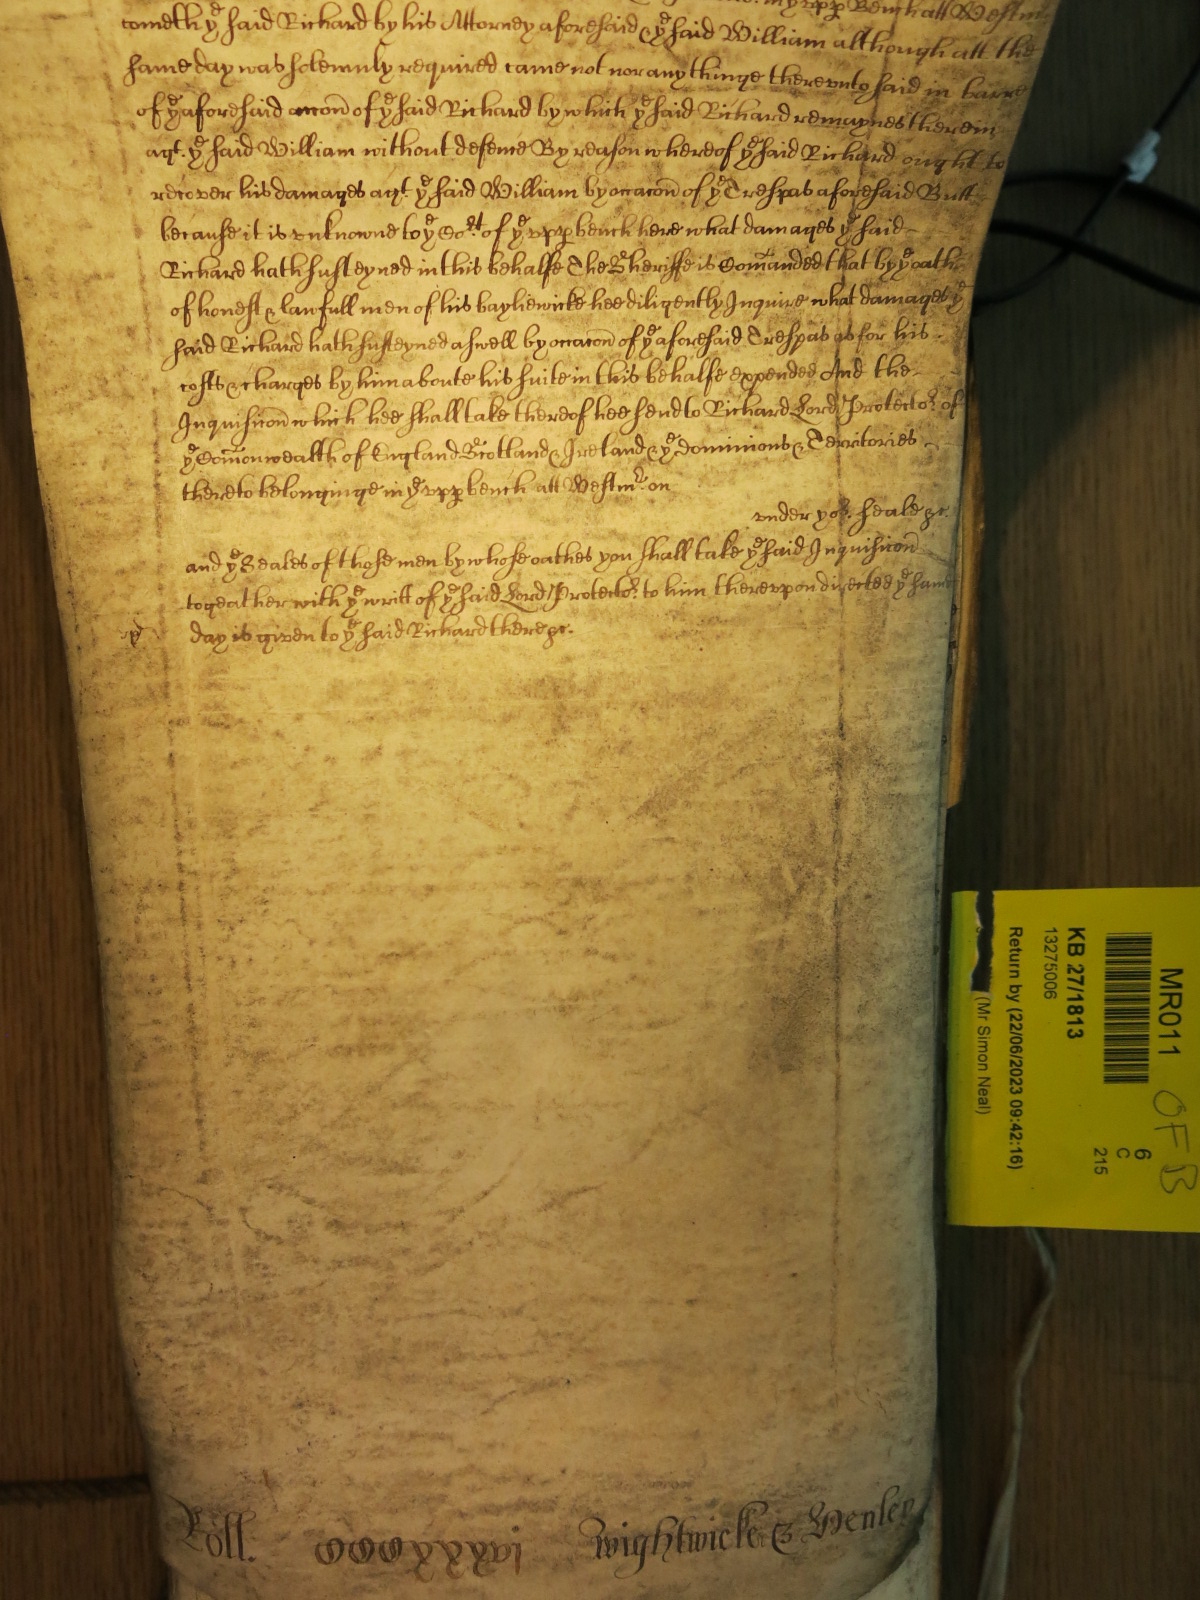 in ye upp Bench att Westm
cometh ye said Richard by his Attorney aforesaid & ye said William although att the
same day was solemnly required came not nor any thinge therevnto said in barre
of ye aforesaid accon of ye said Richard by which ye said Richard remaynes therein
agt. ye said William without defence By reason whereof ye said Richard ought to
recover his damages agt. ye said William by occacon of ye Trespas aforesaid Butt
because it is vnknowne to ye Cort of ye upp bench here what damages ye said
Richard hath susteyned in this behalfe The Sheriffe is Comanded that by ye oath
of honest & lawfull men of his bayliewicke hee diligently Inquire what damages ye
said Richard hath susteyned aswell by occacon of ye aforesaid Trespas as for his
costs & charges by him aboute his suite in this behalfe expended And the
Inquisicon which hee shall take thereof hee send to Richard Lord Protector of
ye Comonwealth of England Scotland & Ireland & ye Dominions & Territories
thereto belonginge in ye upp bench att Westmr. on
vnder yor. seale &c.
and ye Seales of those men by whose oathes you shall take ye said Inquisicon
togeather with ye writt of ye said Lord Protector to him therevpon directed ye same
day is given to ye said Richard there &c.
Roll. Wightwicke & Henley
MR011
OF B
6
C
215
KB 27/1813
13275006
Return by (22/06/2023 09:42:16)
(Mr Simon Neal)